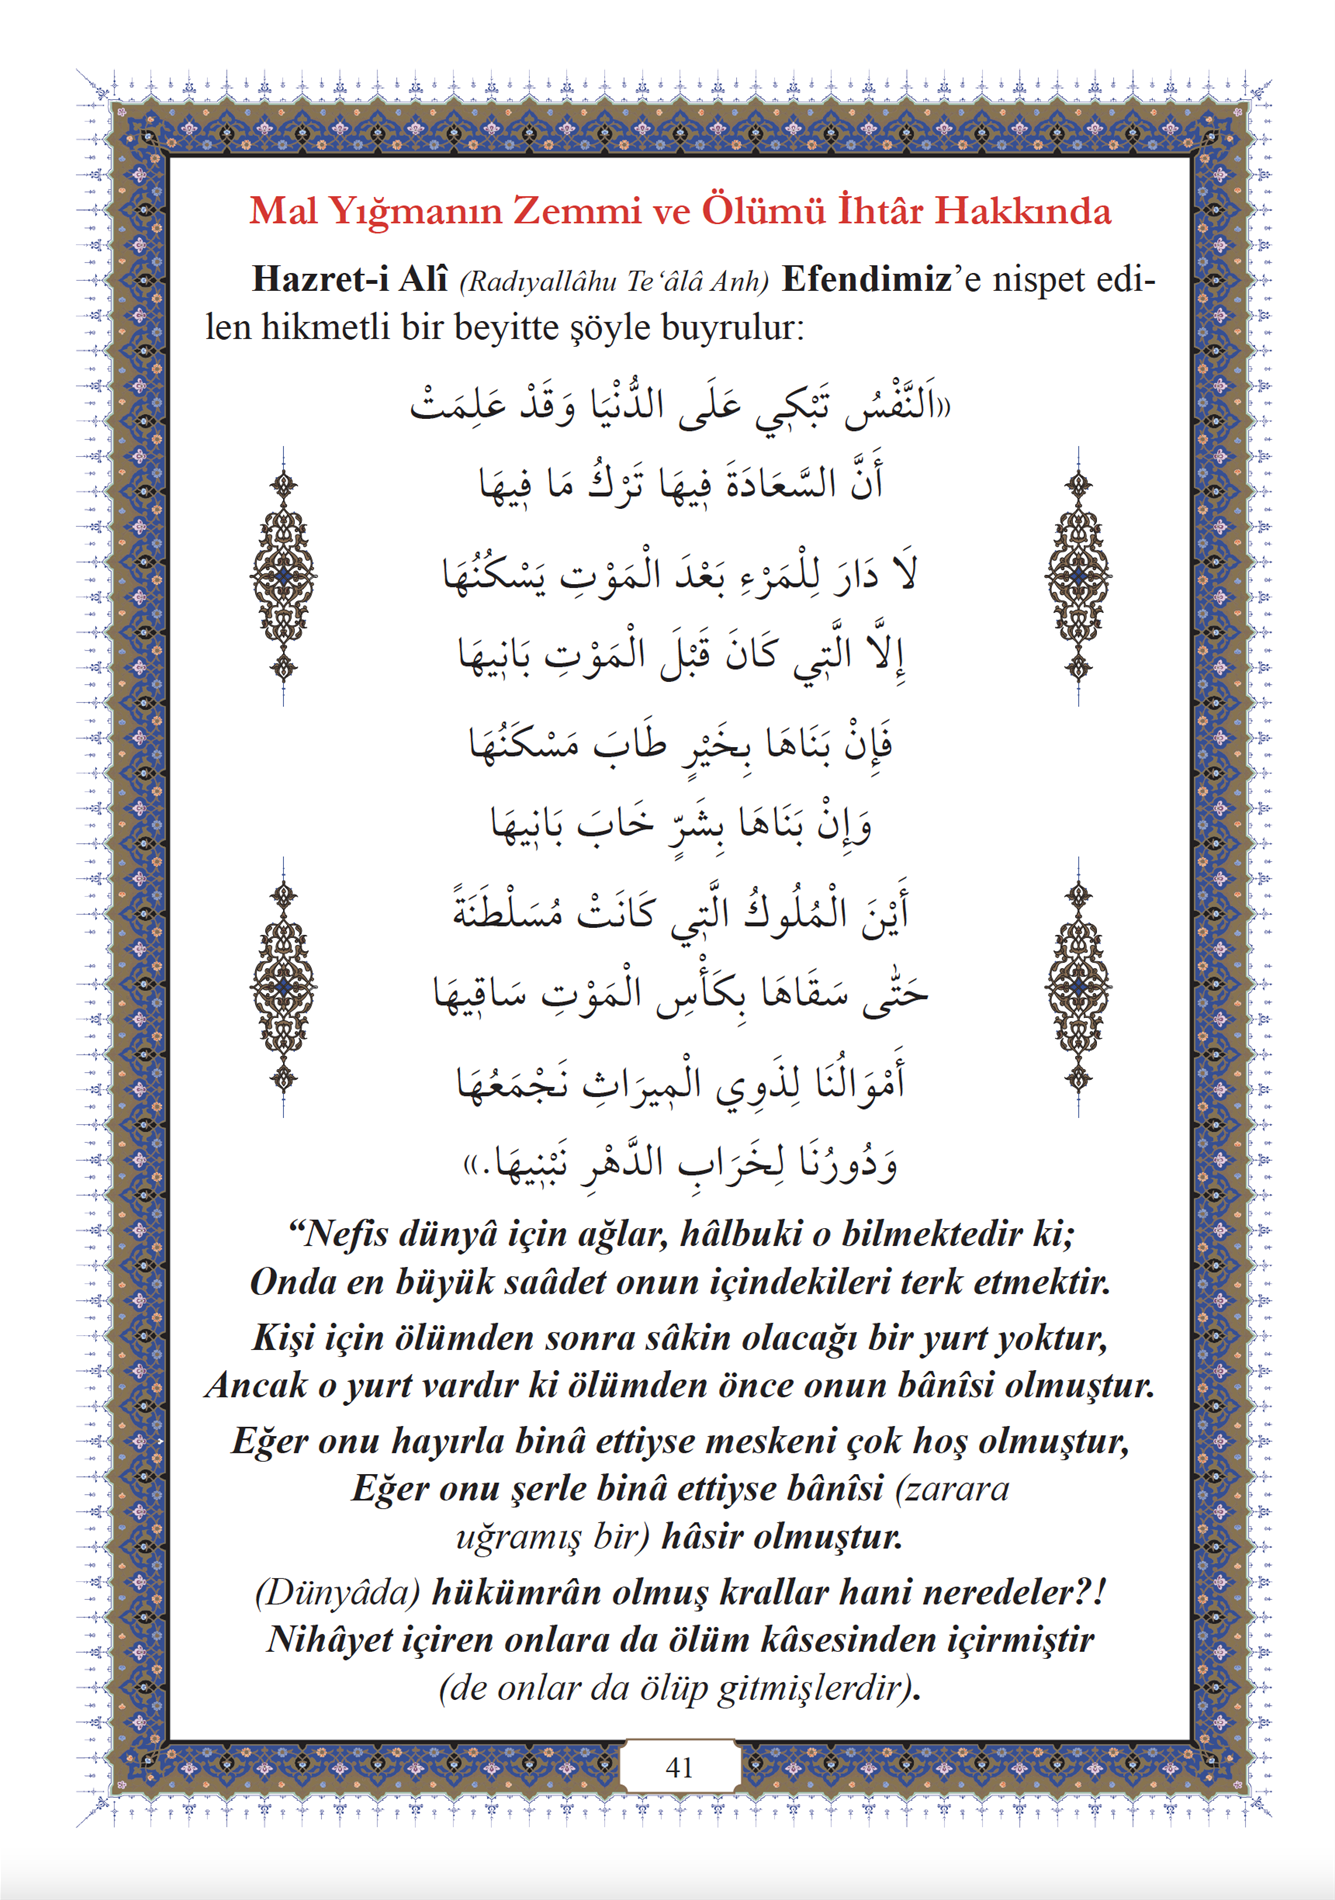 Mal Yığmanın Zemmi ve Ölümü İhtâr Hakkında
Hazret-i Alî (Radıyallâhu Te‘âlâ Anh) Efendimiz’e nispet edi-
len hikmetli bir beyitte şöyle buyrulur:
«اَلنَّفْسُ تَبْكِي عَلَى الدُّنْيَا وَقَدْ عَلِمَتْ
أَنَّ السَّعَادَةَ فِيهَا تَرْكُ مَا فِيهَا
لَا دَارَ لِلْمَرْءِ بَعْدَ الْمَوْتِ يَسْكُنُهَا
إِلَّا الَّتِي كَانَ قَبْلَ الْمَوْتِ بَانِيهَا
فَإِنْ بَنَاهَا بِخَيْرٍ طَابَ مَسْكَنُهَا
وَإِنْ بَنَاهَا بِشَرٍّ خَابَ بَانِيهَا
أَيْنَ الْمُلُوكُ الَّتِي كَانَتْ مُسَلْطَنَةً
حَتّٰى سَقَاهَا بِكَأْسِ الْمَوْتِ سَاقِيهَا
أَمْوَالُنَا لِذَوِي الْمِيرَاثِ نَجْمَعُهَا
وَدُورُنَا لِخَرَابِ الدَّهْرِ نَبْنِيهَا.»
“Nefis dünyâ için ağlar, hâlbuki o bilmektedir ki;
Onda en büyük saâdet onun içindekileri terk etmektir.
Kişi için ölümden sonra sâkin olacağı bir yurt yoktur,
Ancak o yurt vardır ki ölümden önce onun bânîsi olmuştur.
Eğer onu hayırla binâ ettiyse meskeni çok hoş olmuştur,
Eğer onu şerle binâ ettiyse bânîsi (zarara
uğramış bir) hâsir olmuştur.
(Dünyâda) hükümrân olmuş krallar hani neredeler?!
Nihâyet içiren onlara da ölüm kâsesinden içirmiştir
(de onlar da ölüp gitmişlerdir).
41